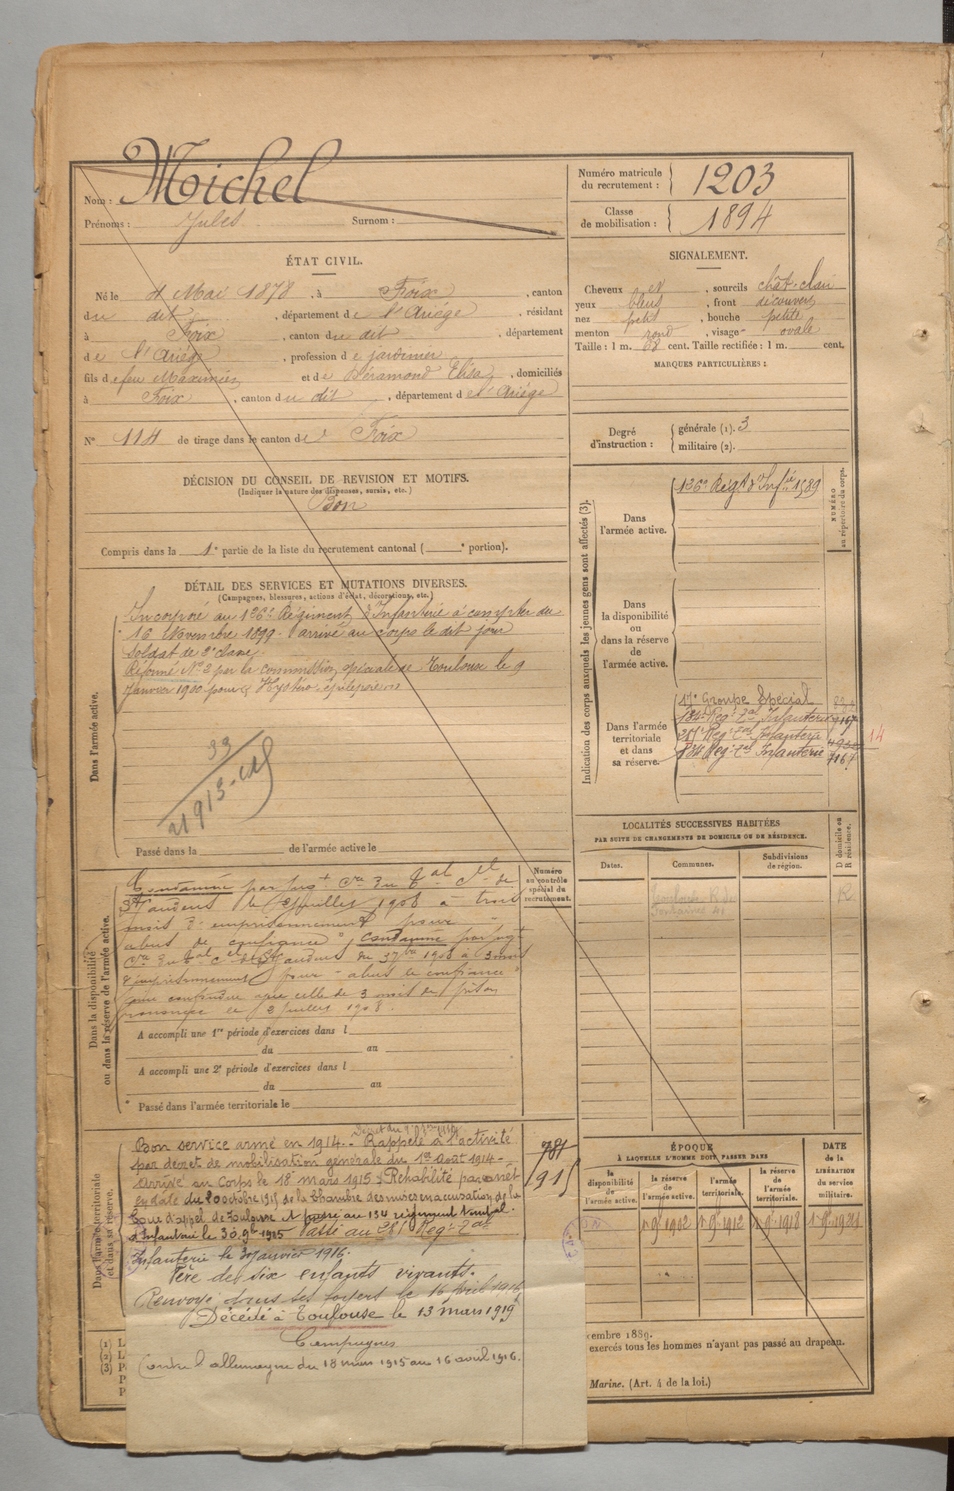 Nom : Michel
Prénoms : Jules Surnom :
Numéro matricule du recrutement : 1203
Classe de mobilisation : 1894
ÉTAT CIVIL.
Né le 4 Mai 1878, à Foix, canton
du dit, département de l'Ariége, résidant
à Foix, canton du dit, département
de l'Ariége, profession de jardinier
fils de feu Maximin et de Béramond Elisa, domiciliés
à Foix, canton du dit, département de l'Ariége
N° 114 de tirage dans le canton de Foix
SIGNALEMENT.
Cheveux et, sourcils chât. clair
yeux bleus, front découvert
nez petit, bouche petite
menton rond, visage ovale
Taille : 1 m. 68 cent. Taille rectifiée : 1 m. cent.
MARQUES PARTICULIÈRES :
Degré d'instruction :
générale (1). 3
militaire (2).
DÉCISION DU CONSEIL DE REVISION ET MOTIFS.
(Indiquer la nature des dispenses, sursis, etc.)
Bon
Compris dans la 1e partie de la liste du recrutement cantonal ( e portion).
DÉTAIL DES SERVICES ET MUTATIONS DIVERSES.
(Campagnes, blessures, actions d'éclat, décorations, etc.)
Dans l'armée active.
Incorporé au 126e Régiment d'Infanterie à compter du
16 Novembre 1899. arrivé au corps le dit jour
soldat de 2e classe.
Réformé N° 2 par la commission spéciale de Toulouse le 9
Janvier 1900 pour
33
21913
Passé dans la de l'armée active le
Indication des corps auxquels les jeunes gens sont affectés (3).
NUMÉRO au répertoire du corps.
Dans l'armée active.
126e Régt d'Infie 1589
Dans la disponibilité ou dans la réserve de l'armée active.
Dans l'armée territoriale et dans sa réserve.
17e Groupe Spécial
134e Reg. Tal Infanterie
Reg. Tal Infanterie
134 Reg. Tal Infanterie
14
LOCALITÉS SUCCESSIVES HABITÉES
PAR SUITE DE CHANGEMENTS DE DOMICILE OU DE RÉSIDENCE.
Dates. Communes. Subdivisions de région. D domicile ou R résidence.
R
Dans la disponibilité ou dans la réserve de l'armée active.
Numéro au contrôle spécial du recrutement.
Condamné par jugt Cre du Tal Cel de
St Gaudens le 13 juillet 1908 à trois
mois d'emprisonnement pour
abus de confiance", condamné par jugt
Cre du Tal Cel de St Gaudens du 1908 à 3 mois
d'emprisonnement pour "abus de confiance"
pour confondre avec celle de 3 mois de prison
prononcée le 13 juillet 1908.
A accompli une 1re période d'exercices dans l
du au
A accompli une 2e période d'exercices dans l
du au
Passé dans l'armée territoriale le
Dans l'armée territoriale et dans sa réserve.
Bon service armé en 1914. Rappelé à l'activité
par décret de mobilisation générale du 1er Août 1914.
Arrivé au Corps le 18 mars 1915. Réhabilité par arrêt
en date du 20 octobre 1915 de la Chambre des mises en accusation de la
Cour d'appel de Toulouse. Passé au 134 régiment
d'Infanterie le 30 9bre 1915 Passé au Reg. Tal
Infanterie le 30 janvier 1916.
Père de six enfants vivants.
Renvoyé dans ses foyers le 16 avril 1916
Décédé à Toulouse le 13 mars 1919
Campagnes
Contre l'allemagne du 18 mars 1915 au 16 avril 1916.
781
1915
ÉPOQUE
À LAQUELLE L'HOMME DOIT PASSER DANS
la disponibilité de l'armée active.
la réserve de l'armée active.
l'armée territoriale.
la réserve de l'armée territoriale.
DATE de la LIBÉRATION du service militaire.
1902 1912 1918
cembre 1889.
exercés tous les hommes n'ayant pas passé au drapeau.
Marine. (Art. 4 de la loi.)
(1) L
(2) L
(3) P
P
P